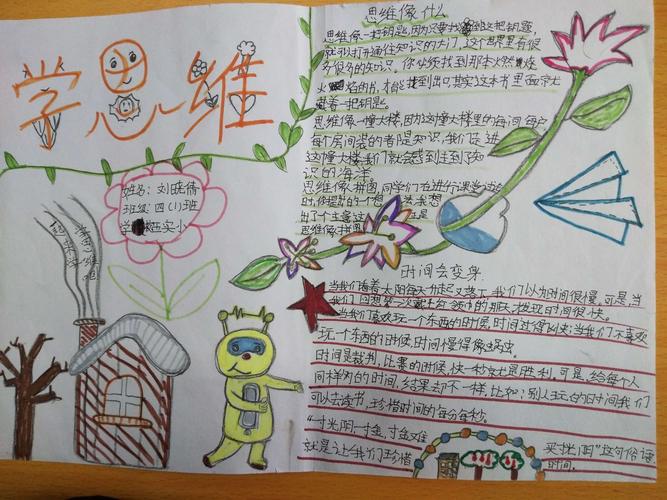 学思维
姓名：刘晓倩
班级：四(1)班
学 西实小
一起来
学思维吧
思维像什么
思维像一把钥匙，因为只要找到这把钥匙，
就可以打开通往知识的大门，这个世界里有很
多很多的知识。你必须找到那本火燃
火 焰的书，才能找到出，其实这本书里面
藏着一把钥匙。
思维像一幢大楼，因为这幢大楼里的每间每户
每个房间装的者是知识，我们 进
这幢大楼，我们就会感到 知
识的海洋
思维像拼图，同学们在进行课堂
时，你提出的一个想 想
出了个主意这 是
思维像拼图
时间会变身
当我们看着太阳每天升起又落下，我们以为时间很慢，可是，当
我们回想第一次戴上红领巾的那天，发现时间很快。
当我们喜欢玩一个东西的时候，时间过得飞快；当我们不喜欢
玩一个东西的时候，时间慢得像蜗虫
时间是裁判，比赛的时候，快一秒钟也是胜利。可是，给每个人
同样多的时间，结果却不一样，比如：别人玩的时间我们
可以去读书，珍惜时间的每分每秒。
“一寸光阴一寸金，寸金难 买寸光阴”这句俗语
就是 让我们珍惜 时间。